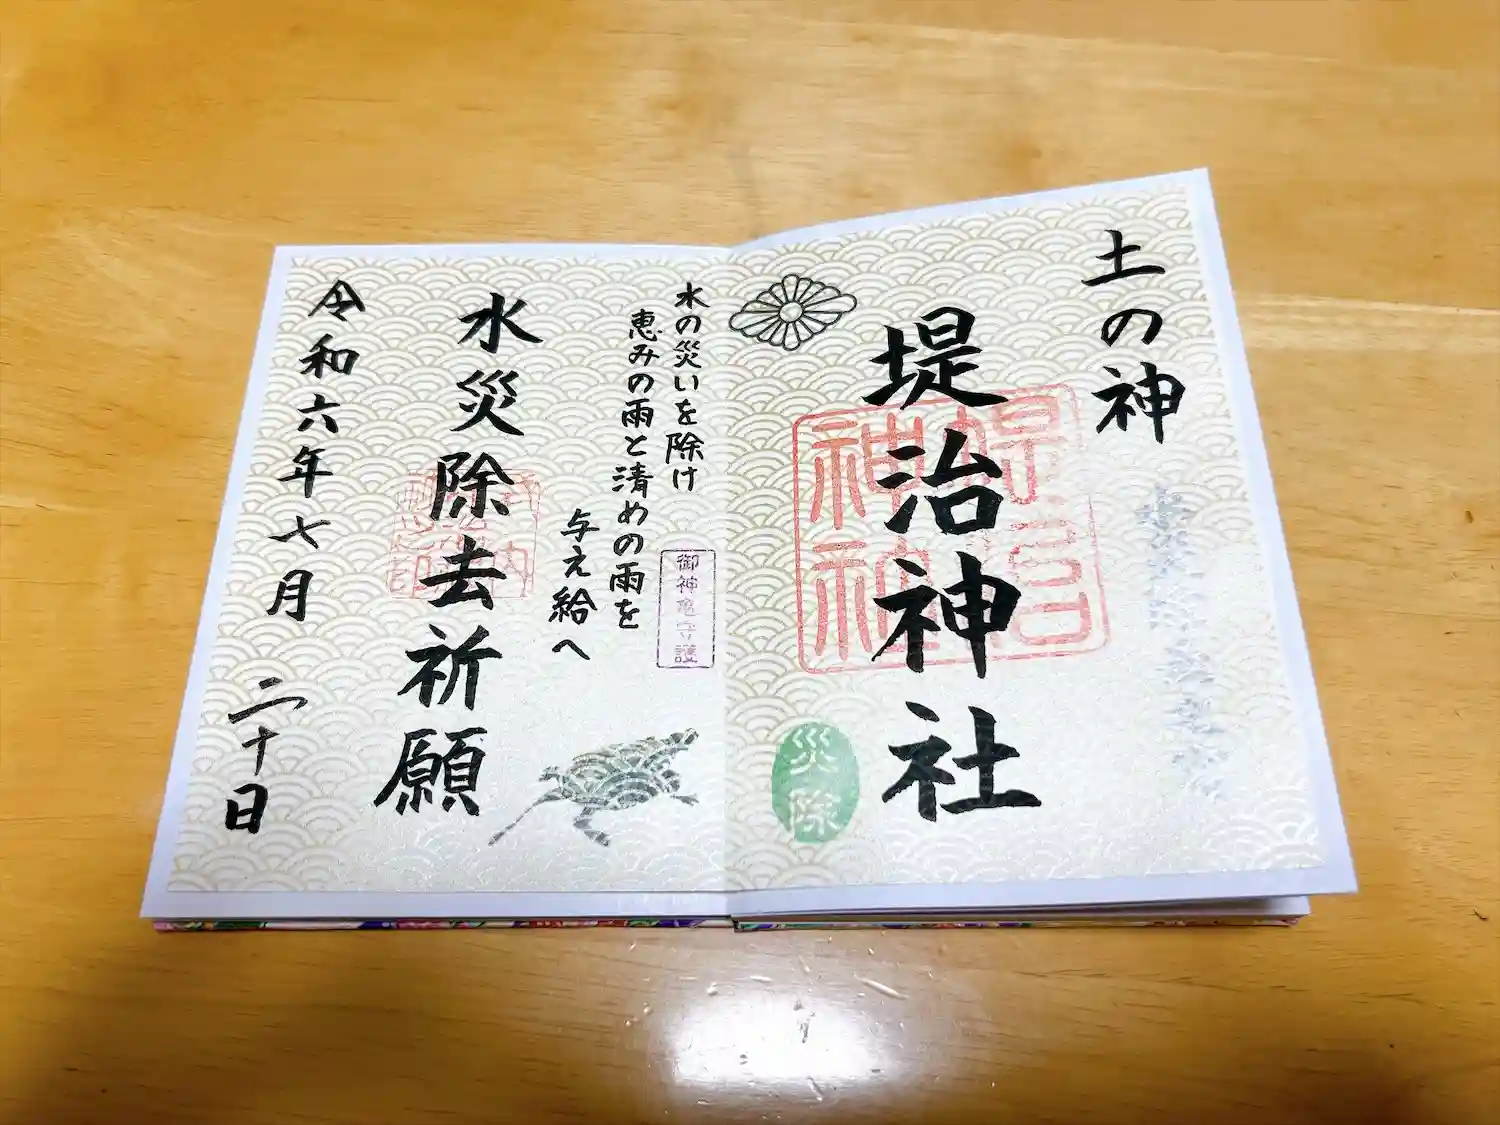 土の神
堤治神社
堤治
神社
災除
水の災いを除け
恵みの雨と清めの雨を
与え給へ
御神亀守護
水災除去祈願
令和六年七月二十日